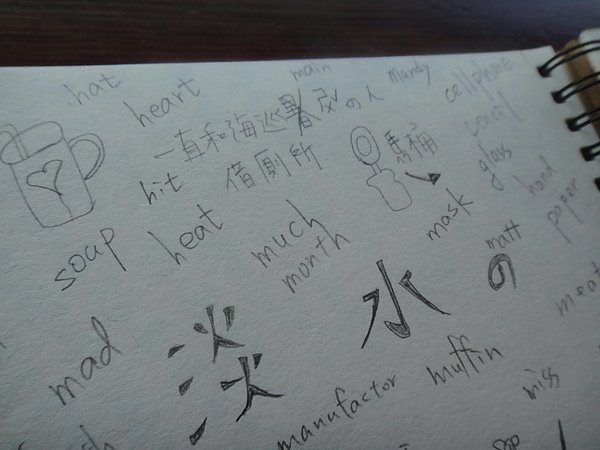 hat
heart
main
Mandy
cellphone
pencil
一直和海巡署
の人
借廁所
馬桶
hit
glass
hand
paper
soap
heat
much
month
mask
matt
の
meat
淡
水
mad
manufactor
muffin
miss